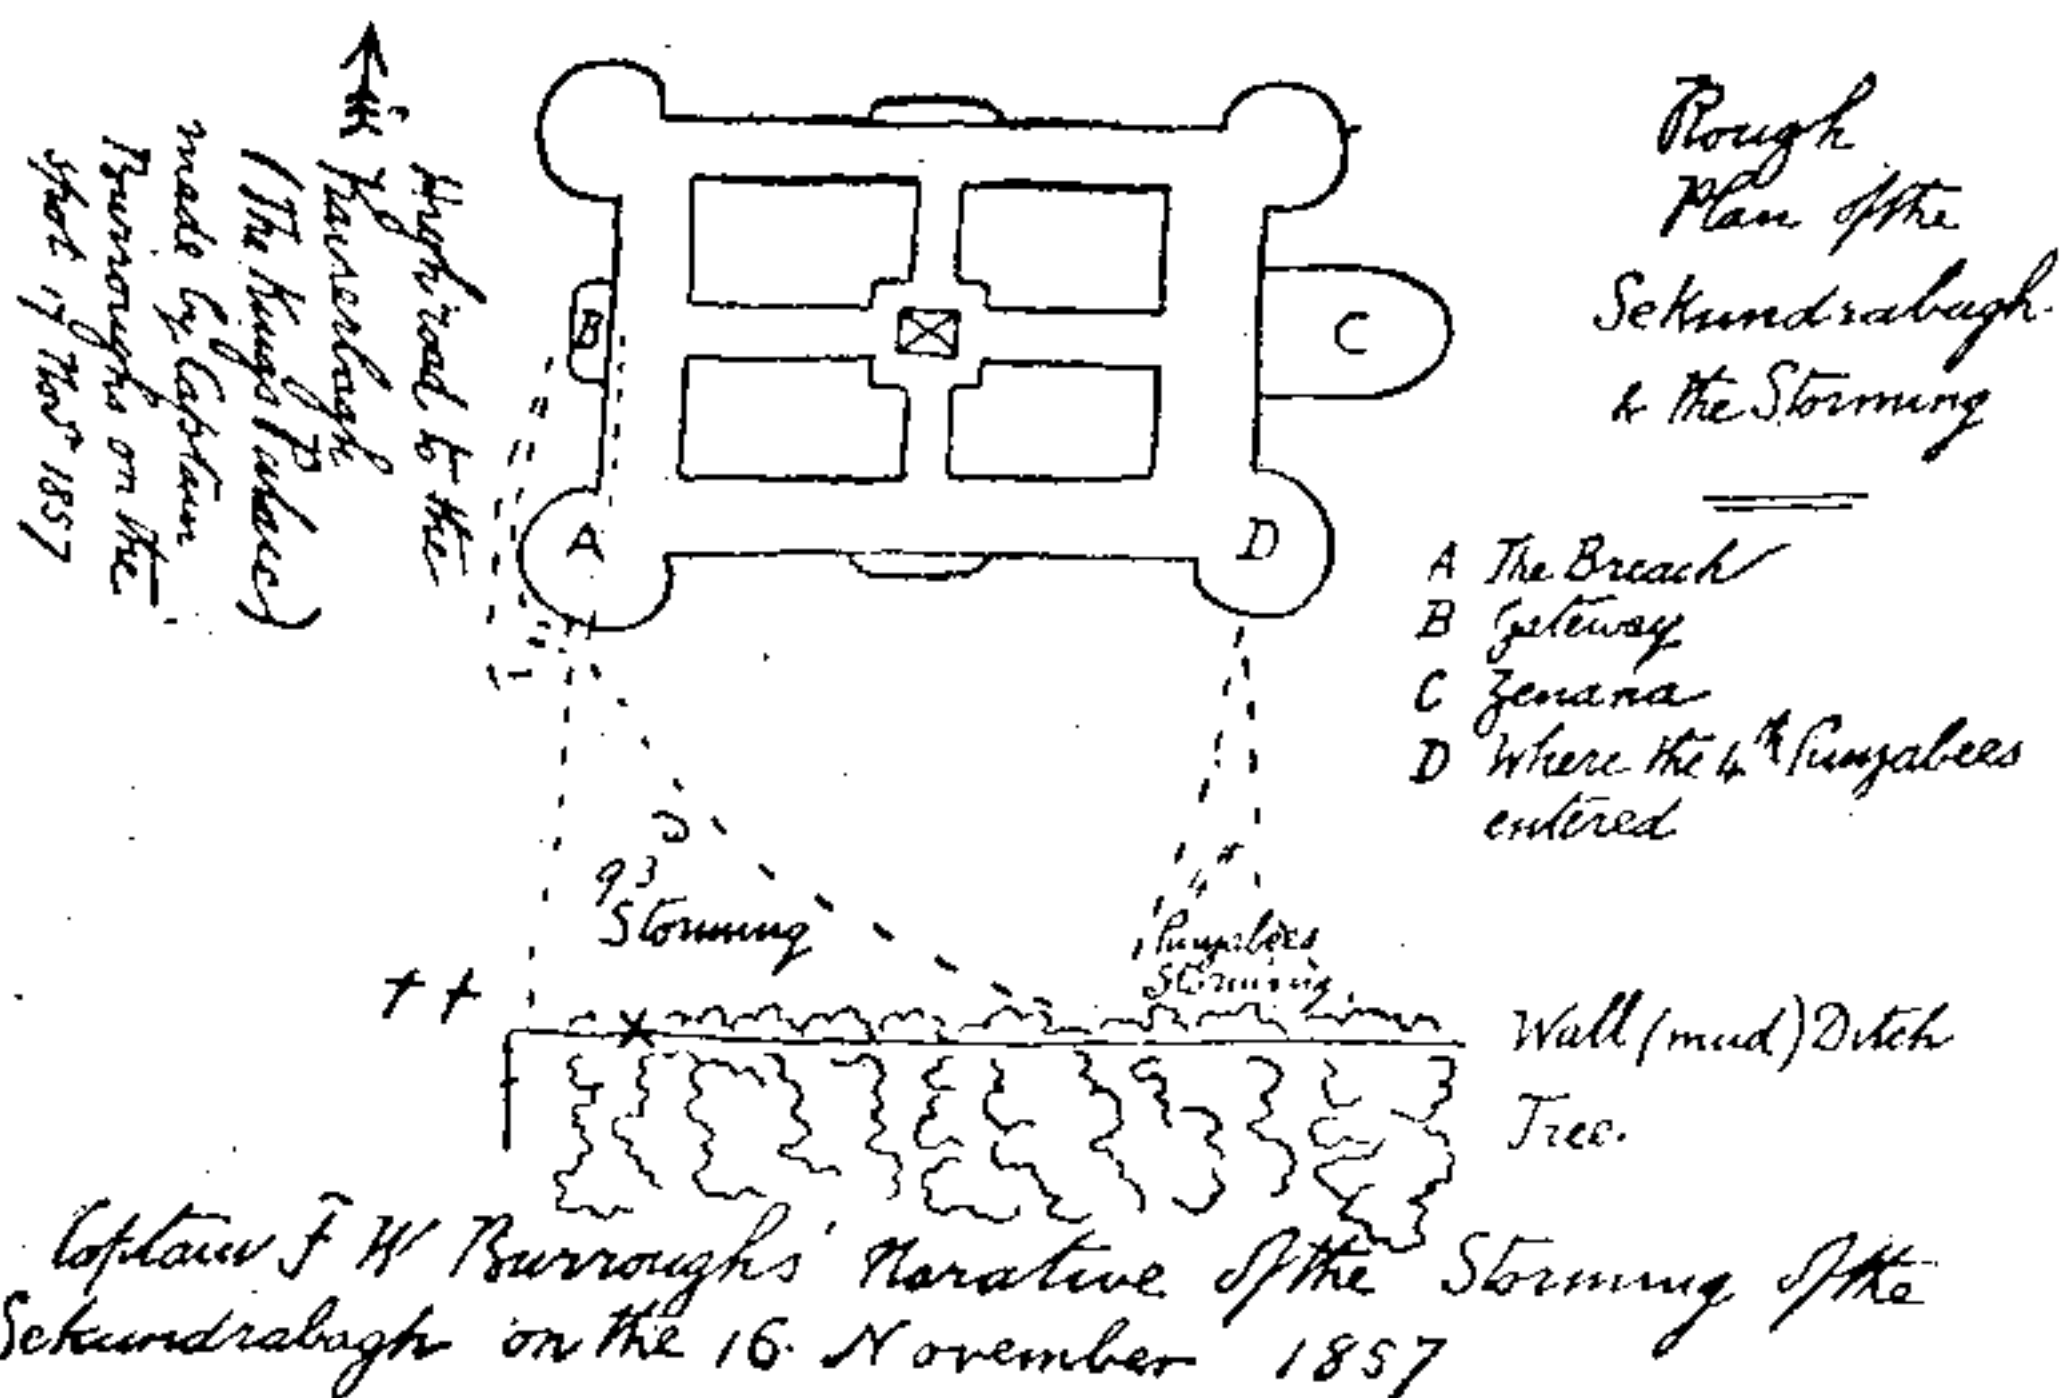 High road to the
Kaiserbagh
(The Kings Palace)
made by Captain
Burroughs on the
spot 17 Nov 1857
Rough
Plan of the
Sekundrabagh
& the Storming
B
C
A
D
A The Breach
B Gateway
C Zenana
D Where the 4th Punjabees
entered
93
Storming
4th
Punjabees
Storming
Wall (mud) Ditch
Tree.
Captain F W Burroughs' Narative of the Storming of the
Sekundrabagh on the 16. November 1857